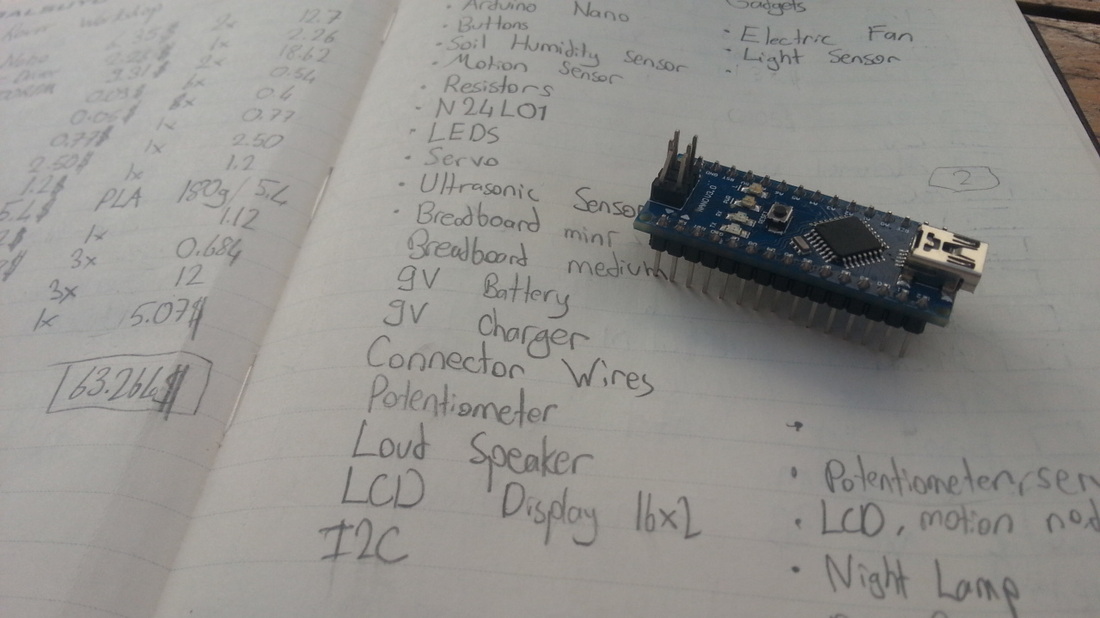 Workshop
2x 12.7
3.5$ 1x 2.26
2x 18.62
9.31$ 1x 0.54
0.4
0.05$ 8x 0.77
0.77$ 1x 2.50
2.50$ 1x 1.2
PLA 180g/5.4
1x 1.12
3x 0.684
3x 12
1x 5.07$
63.264$
· Arduino Nano
· Buttons
· Soil Humidity sensor
· Motion Sensor
· Resistors
· N24L01
· LEDS
· Servo
· Ultrasonic Sensor
· Breadboard mini
Breadboard medium
9V Battery
9V Charger
Connector Wires
Potentiometer
Loud Speaker
LCD Display 16x2
I2C
Gadgets
· Electric Fan
· Light Sensor
2
NANO V3.0
· Potentiometer, serv
· LCD, motion nod
· Night Lamp